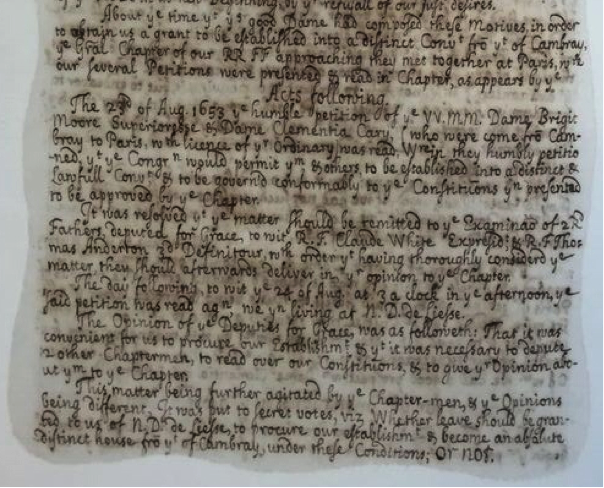 by yᵉ refusall of our just desires.
About yᵉ time yᵗ yˢ good Dame had composed these Motives, in order
to obtain us a grant to be established into a distinct Convᵗ frō yᵗ of Cambray,
yᵉ Gñal Chapter of our RR FF approaching they met together at Paris, wʳᵉ
our several Petitions were presented & read in Chapter, as appears by yᵉ
Acts following.
The 23ᵈ of Aug. 1653 yᵉ humble petition of yᵉ VV. MM. Dame Brigit
Moore Superioresse & Dame Clementia Cary, (who were come frō Cam-
bray to Paris, wᵗʰ licence of yʳ Ordinary) was read, Wʳein they humbly petitio
-ned, yᵗ yᵉ Congrⁿ would permit yᵐ & others, to be established into a distinct &
Lawfull Convᵗ, & to be governd conformably to yᵉ Constitutions yⁿ presented
to be approved by yᵉ Chapter.
It was resolved yᵗ yᵉ matter should be remitted to yᵉ Examinaõ of 2 RR
Fathers deputed for Grace, to wit R. F. Claude White Expresidᵗ & R. F. Tho:
mas Anderton 3ᵈ Definitour, wᵗʰ order yᵗ having thoroughly considerd yᵉ
matter, they should afterwards deliver in yʳ opinion to yᵉ Chapter.
The day following, to wit yᵉ 24 of Aug. at 3 a clock in yᵉ afternoon, yᵉ
said petition was read agⁿ we yⁿ living at N. D. de Liesse.
The Opinion of yᵉ Deputies for Grace, was as followeth: That it was
convenient for us to procure our Establishmᵗ & yᵗ it was necessary to depute
2 other Chaptermen, to read over our Constitutions, & to give yʳ Opinion abo-
ut yᵐ to yᵉ Chapter.
This matter being further agitated by yᵉ Chapter-men, & yᵉ Opinions
being different, It was put to secret votes, viz Whether leave should be gran-
ted to us of N. D. de Liesse, to procure our establishmᵗ & become an absolute
distinct house frō yᵗ of Cambray, under these Conditions; Or not.